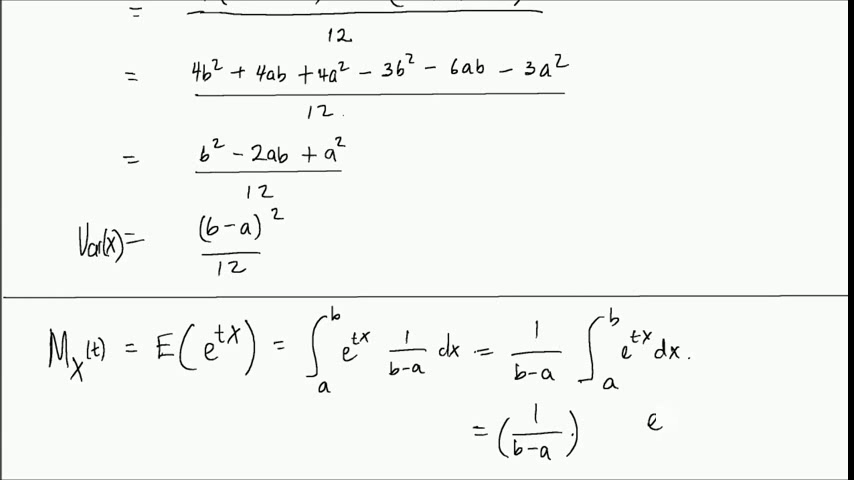 =
12
= 4b² + 4ab + 4a² - 3b² - 6ab - 3a²
12.
= b² - 2ab + a²
12
Var(X) = (b-a)²
12
M_X(t) = E(e^{tX}) = ∫_a^b e^{tx} 1/(b-a) dx = 1/(b-a) ∫_a^b e^{tx} dx.
= (1/(b-a)) e